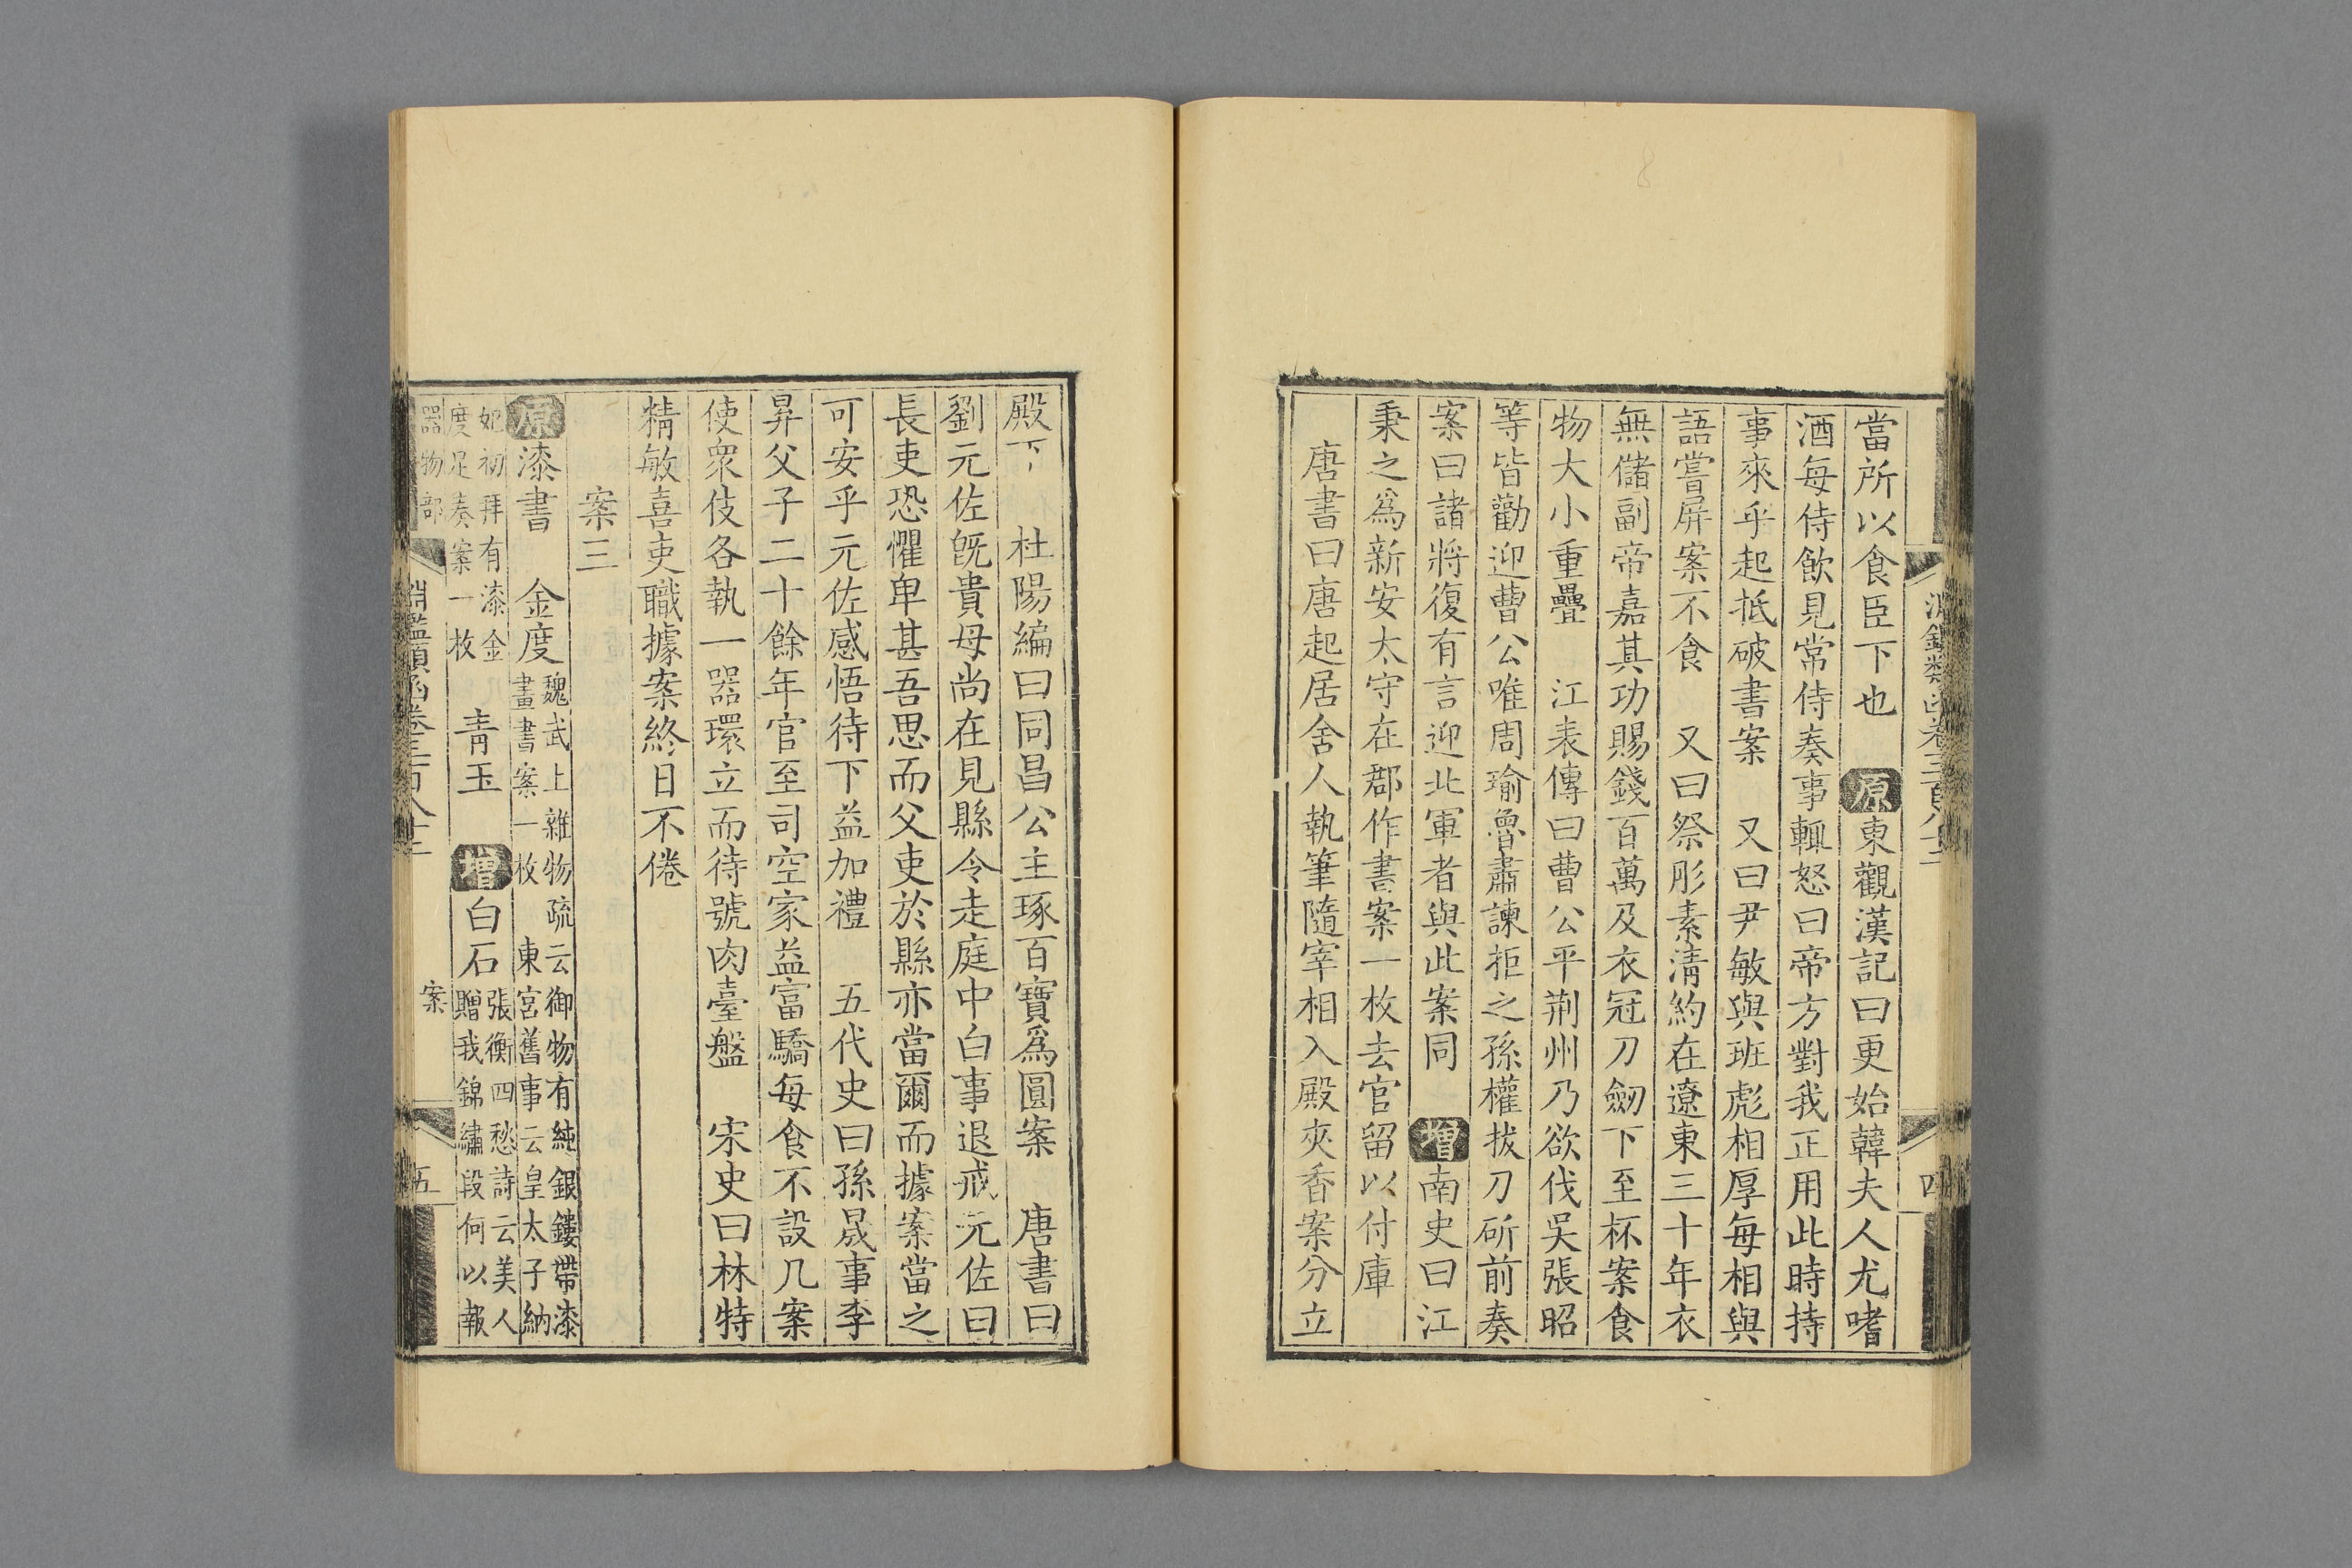 當所以食臣下也　原東觀漢記曰更始韓夫人尤嗜
酒每侍飲見常侍奏事輒怒曰帝方對我正用此時持
事來乎起抵破書案　又曰尹敏與班彪相厚每相與
語嘗屏案不食　又曰祭肜素清約在遼東三十年衣
無儲副帝嘉其功賜錢百萬及衣冠刀劒下至杯案食
物大小重疊　江表傳曰曹公平荆州乃欲伐吳張昭
等皆勸迎曹公唯周瑜魯肅諫拒之孫權拔刀斫前奏
案曰諸將復有言迎北軍者與此案同　增南史曰江
秉之爲新安太守在郡作書案一枚去官留以付庫
唐書曰唐起居舍人執筆隨宰相入殿夾香案分立
殿下　杜陽編曰同昌公主琢百寶爲圓案　唐書曰
劉元佐旣貴母尚在見縣令走庭中白事退戒元佐曰
長吏恐懼卑甚吾思而父吏於縣亦當爾而據案當之
可安乎元佐感悟待下益加禮　五代史曰孫晟事李
昇父子二十餘年官至司空家益富驕每食不設几案
使衆伎各執一器環立而待號肉臺盤　宋史曰林特
精敏喜吏職據案終日不倦
案三
原漆書　金度魏武上雜物疏云御物有純銀鏤帶漆
畫書案一枚　東宮舊事云皇太子納
妃初拜有漆金
度足奏案一枚　青玉　增白石張衡四愁詩云美人
贈我錦繡段何以報
器物部
淵鑑類函卷三百八十二
案
五
四